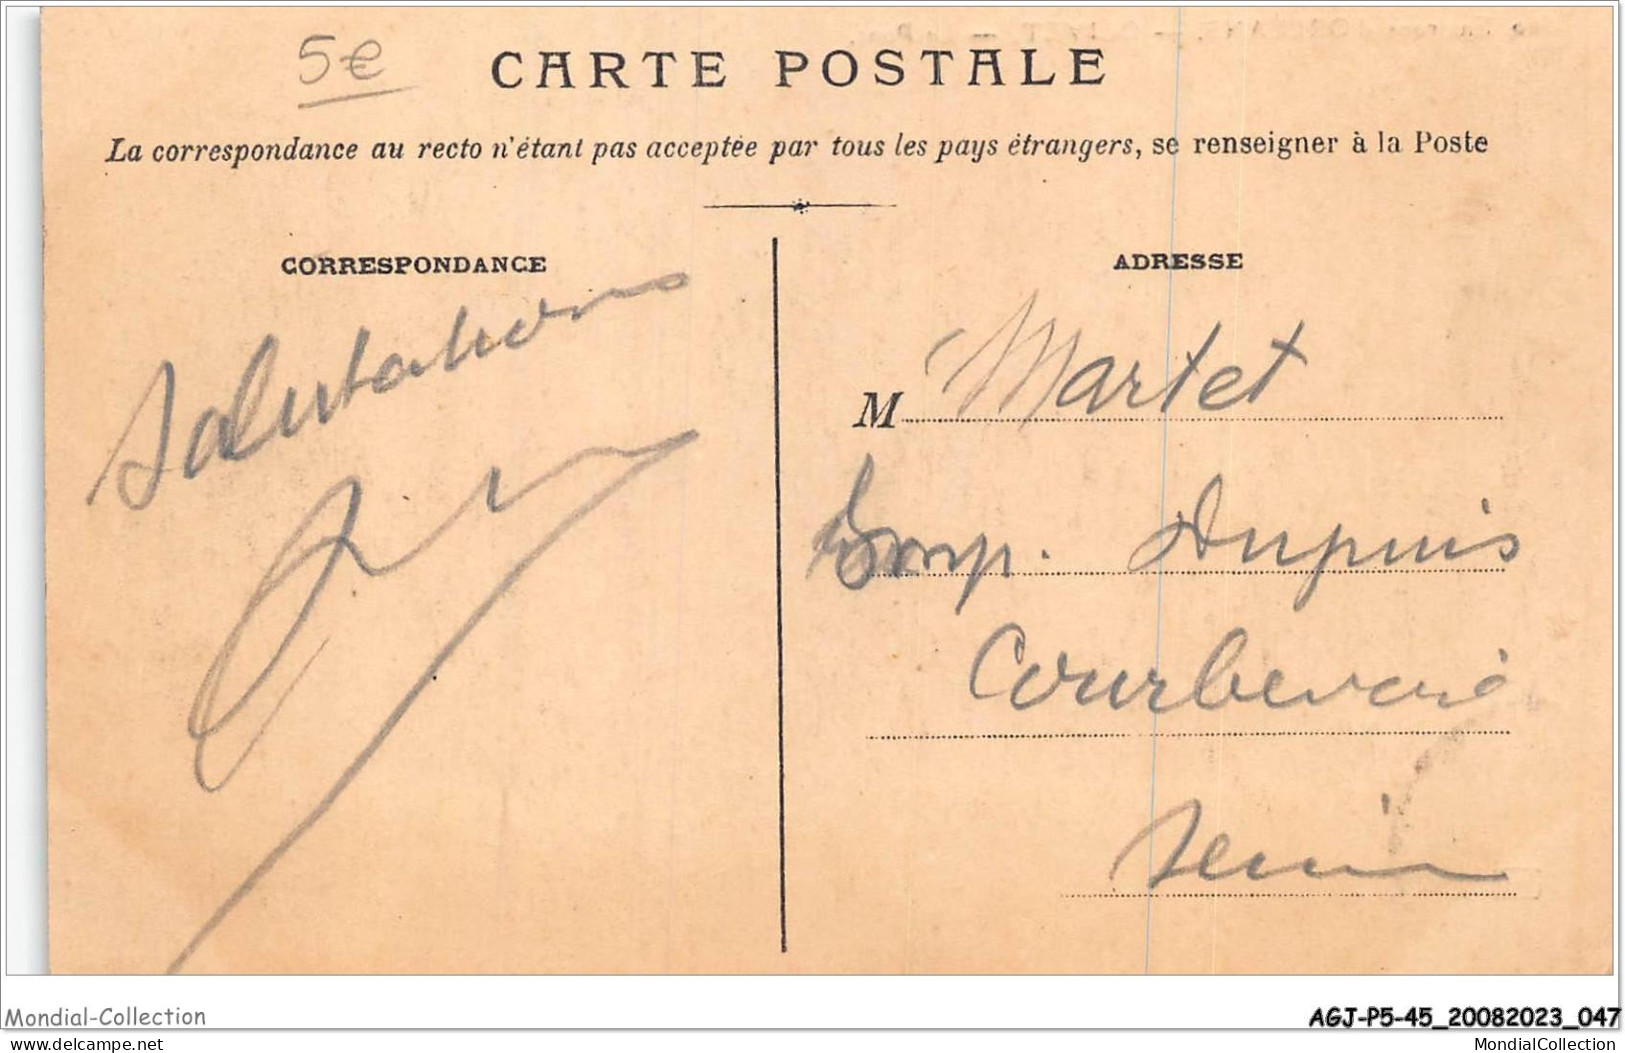 5€
CARTE POSTALE
La correspondance au recto n'étant pas acceptée par tous les pays étrangers, se renseigner à la Poste
CORRESPONDANCE
Salutations
ADRESSE
M Martet
Imp. Dupuis
Courbevoie
Seine
Mondial-Collection
AGJ-P5-45_20082023_047
delcampe.net
MondialCollection